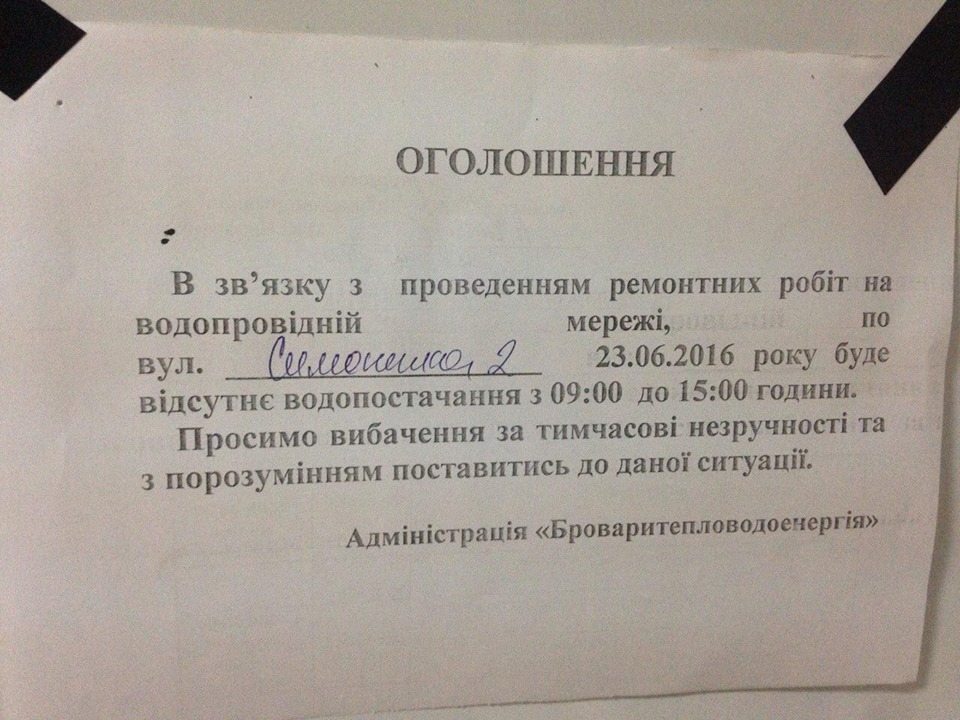 ОГОЛОШЕННЯ
В зв’язку з проведенням ремонтних робіт на
водопровідній мережі, по
вул. Симоненка, 2 23.06.2016 року буде
відсутнє водопостачання з 09:00 до 15:00 години.
Просимо вибачення за тимчасові незручності та
з порозумінням поставитись до даної ситуації.
Адміністрація «Броваритепловодоенергія»